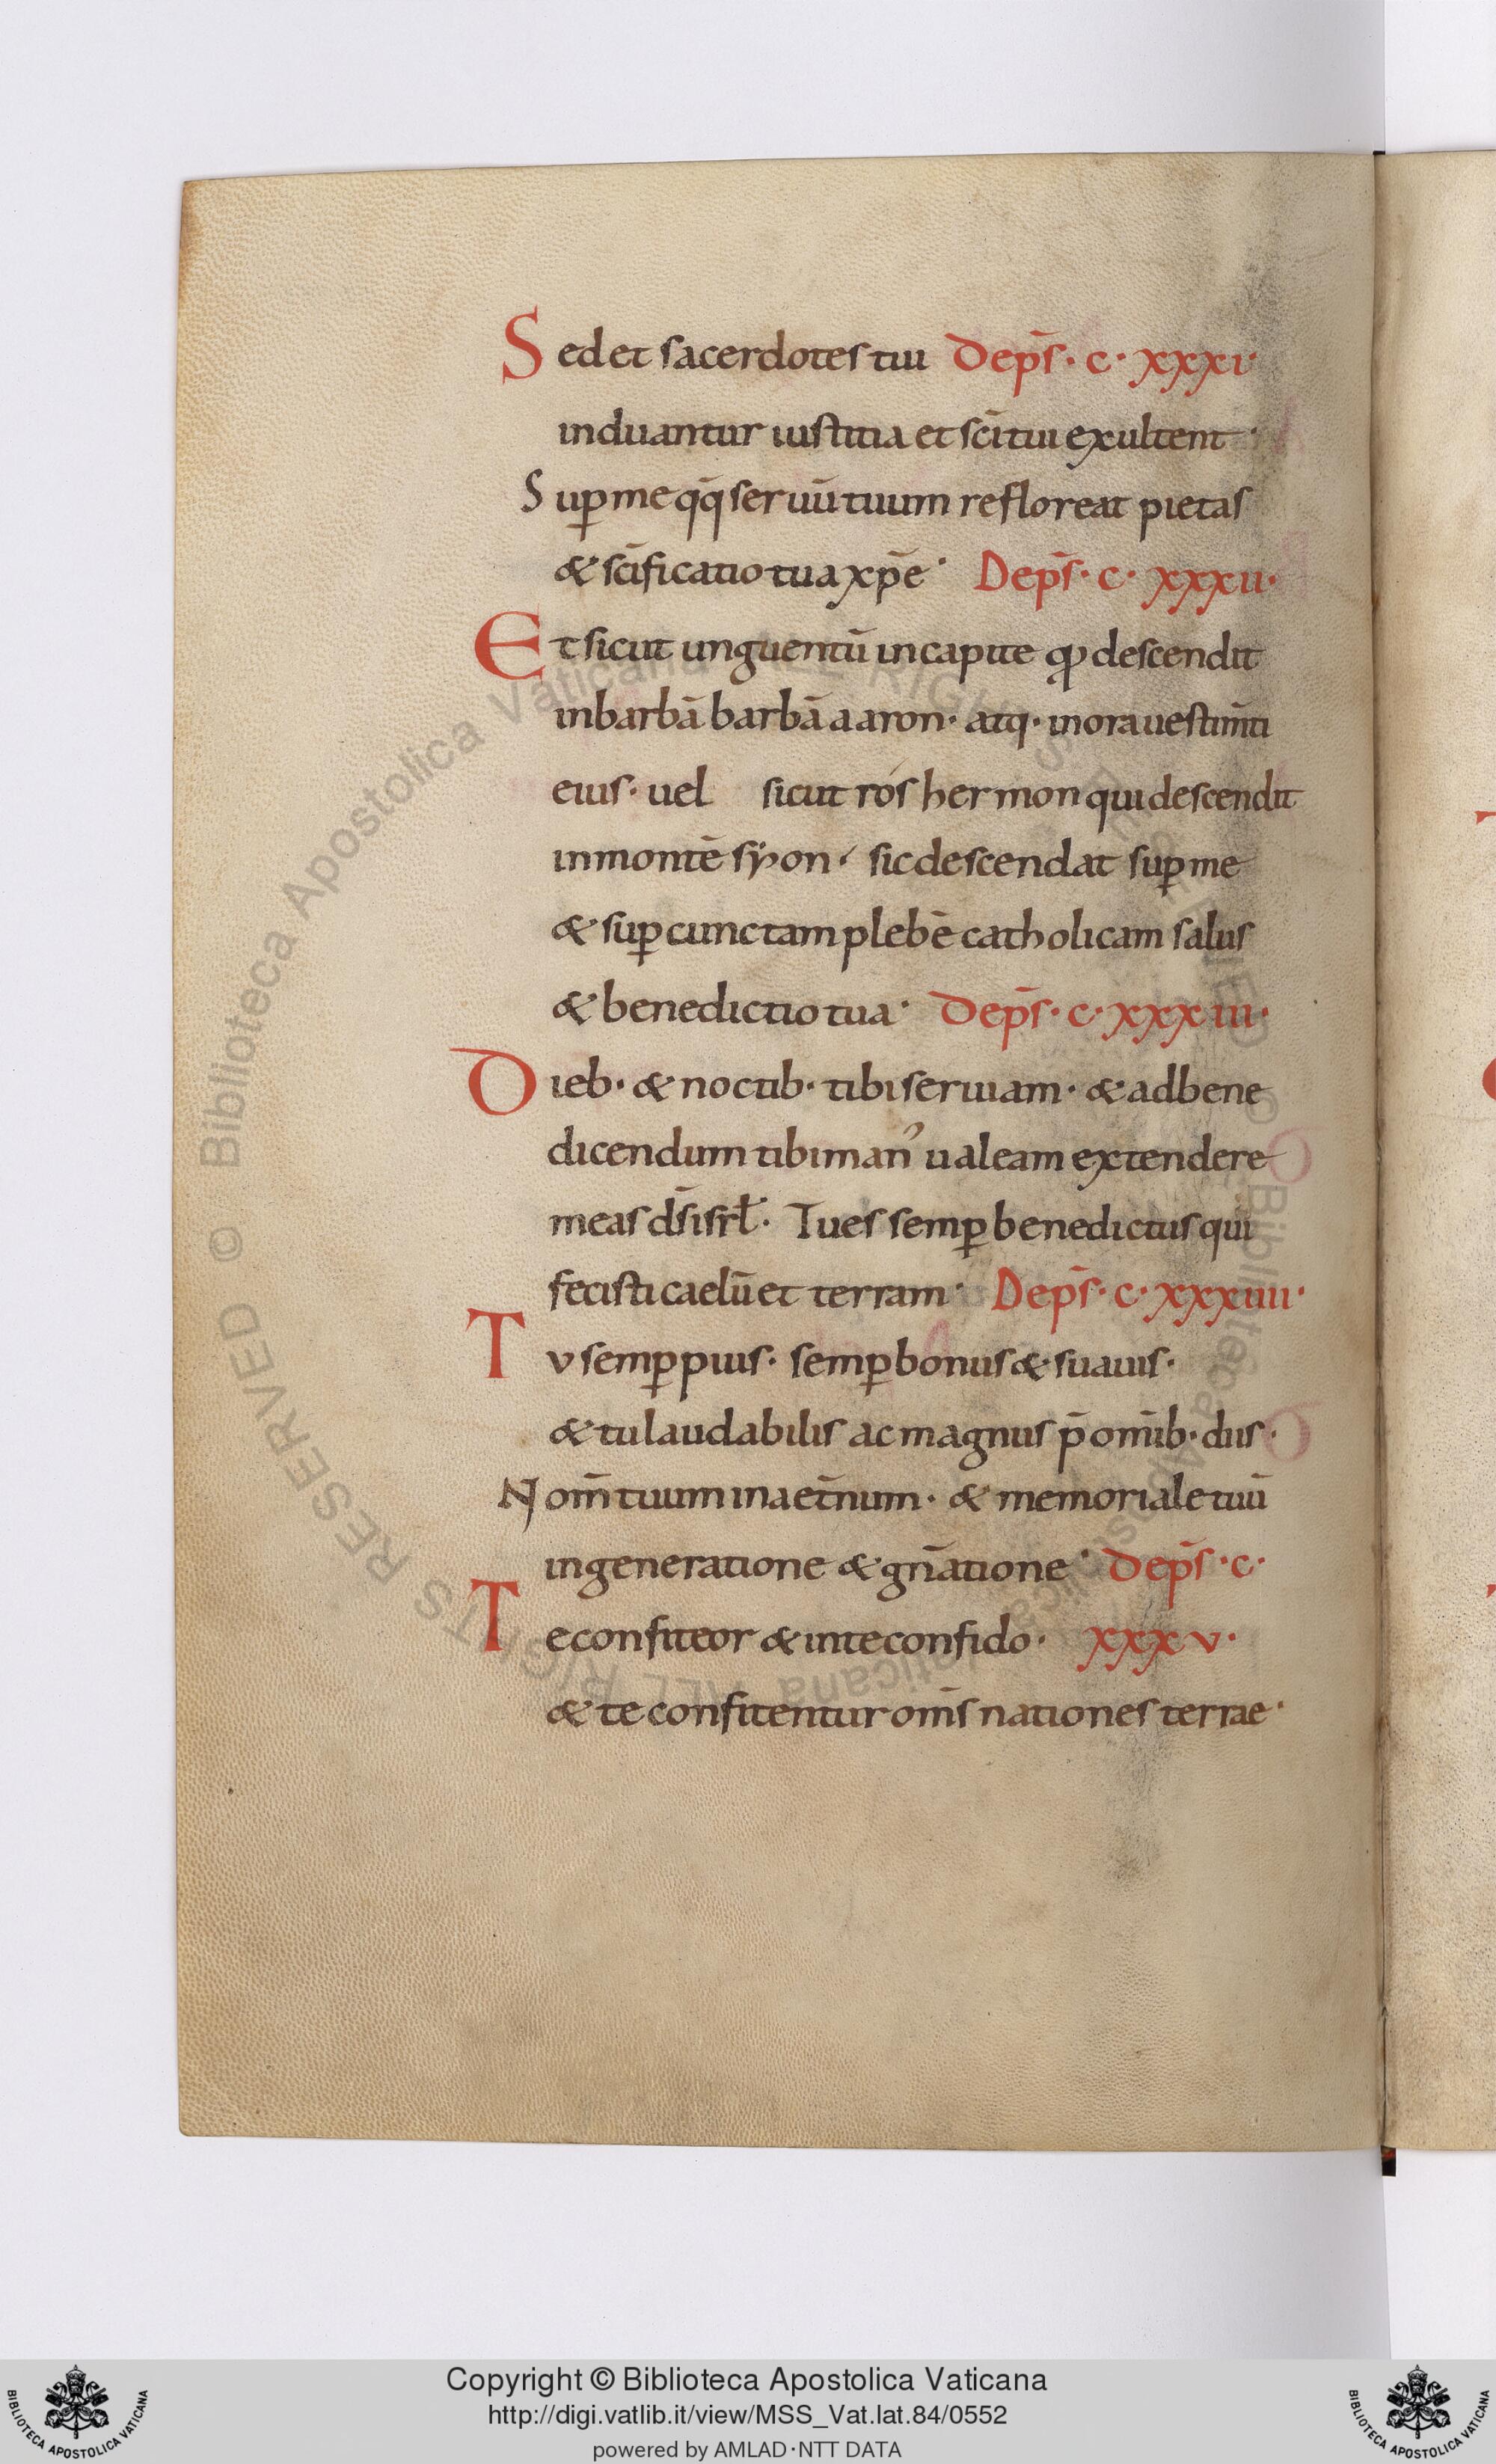 Sed et sacerdotes tui Dep̄s · c · xxxi ·
induantur iustitia et sc̄i tui exultent ·
Sup̲ me q̄q̄ seruū tuum refloreat pietas
& sc̄ificatio tua xp̄e · Dep̄s · c · xxxii ·
Et sicut unguentū in capite qd descendit
in barbā barbā aaron · atq · in ora uestim̄ti
eius · uel sicut rós hermon qui descendit
in montē syon · sic descendat sup̲ me
& sup̲ cunctam plebē catholicam salus
& benedictio tua · Dep̄s · c · xxxiii ·
Dieb · & noctib · tibi seruiam · & ad bene
dicendum tibi man' ualeam extendere
meas d̄s isrł · Tu es semp̲ benedictus qui
fecisti caelū et terram · Dep̄s · c · xxxiiii ·
Tv semp̲ pius · semp̲ bonus & suauis ·
& tu laudabilis ac magnus p̄ om̄ib · diis ·
Nom̄ tuum in aet̄num · & memoriale tuū
in generatione & gn̄atione · Dep̄s · c ·
Te confiteor & in te confido · xxxv ·
& te confitentur om̄s nationes terrae ·
Copyright © Biblioteca Apostolica Vaticana
http://digi.vatlib.it/view/MSS_Vat.lat.84/0552
powered by AMLAD·NTT DATA
BIBLIOTECA APOSTOLICA VATICANA
BIBLIOTECA APOSTOLICA VATICANA
© Biblioteca Apostolica Vaticana ALL RIGHTS RESERVED © Biblioteca Apostolica Vaticana ALL RIGHTS RESERVED